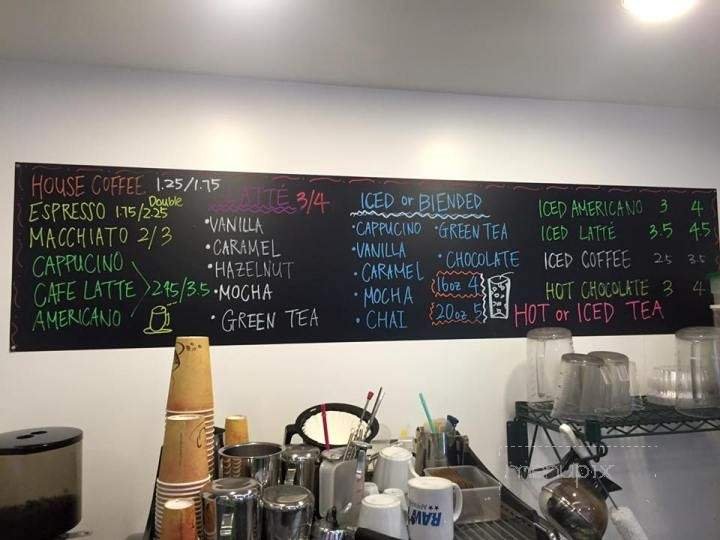 HOUSE COFFEE 1.25/1.75
ESPRESSO 1.75/2.25 Double
MACCHIATO 2/3
CAPPUCINO
CAFE LATTE 2.95/3.5
AMERICANO
LATTÉ 3/4
•VANILLA
•CARAMEL
•HAZELNUT
•MOCHA
•GREEN TEA
ICED or BLENDED
•CAPPUCINO •GREEN TEA
•VANILLA
•CHOCOLATE
•CARAMEL
16oz 4
•MOCHA
20oz 5
•CHAI
ICED AMERICANO 3 4
ICED LATTÉ 3.5 4.5
ICED COFFEE 2.5 3.5
HOT CHOCOLATE 3 4
HOT or ICED TEA
RAW
menupix